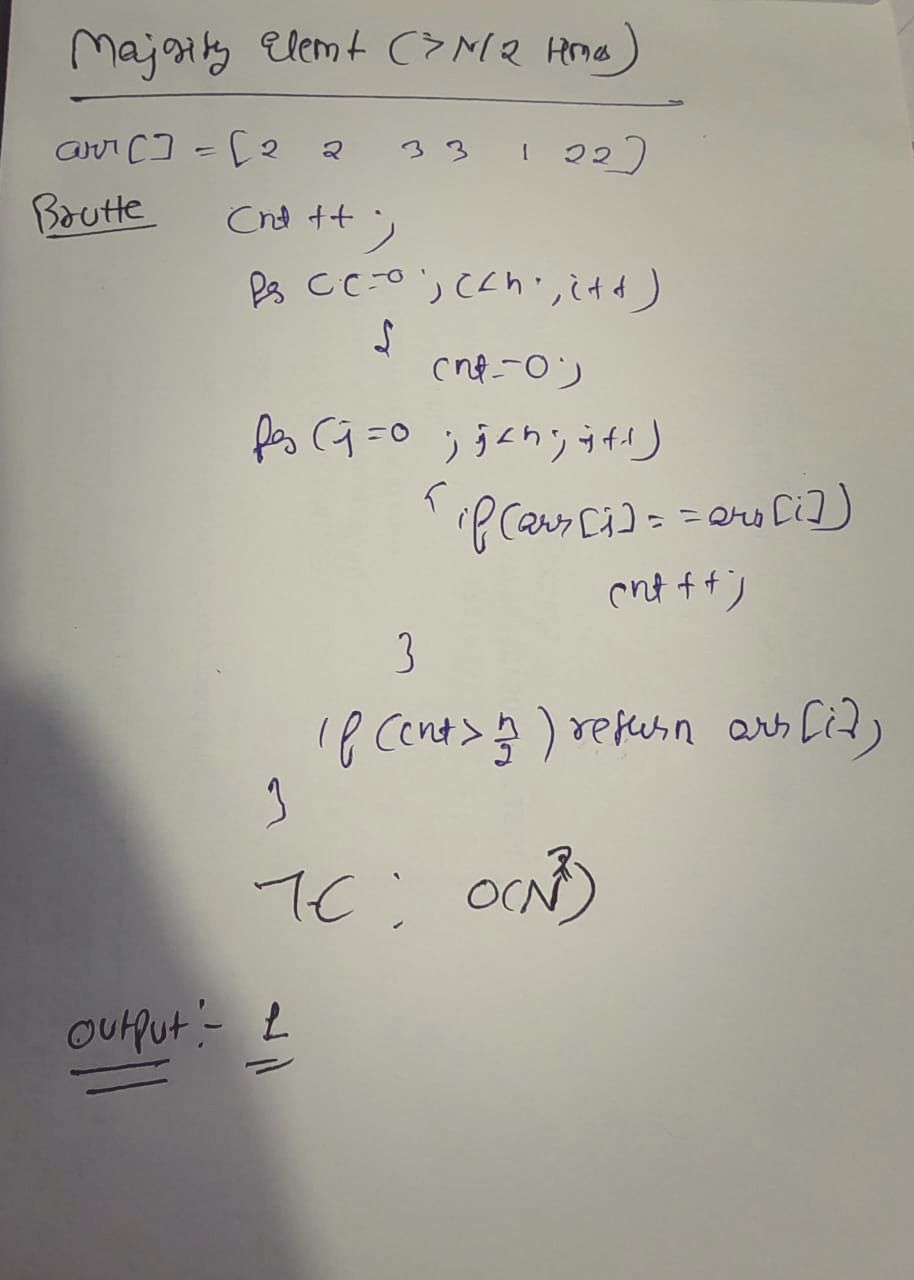 Majority Elemt (> N/2 times)
arr[] = [2 2 3 3 1 2 2]
Brutte cnt ++;
for (i=0; i<n; i++)
{
cnt=0;
for (j=0; j<n; j++)
{ if (arr[j] == arr[i])
cnt ++;
}
if (cnt > n/2) return arr[i];
}
TC : O(N²)
output :- 1